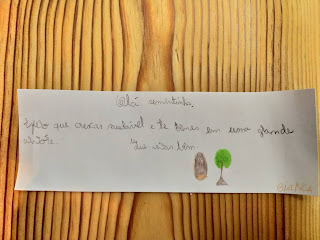 Olá sementinha,
Espero que cresças saudável e te tornes em uma grande
árvore. Que vivas bem.
BIANCA